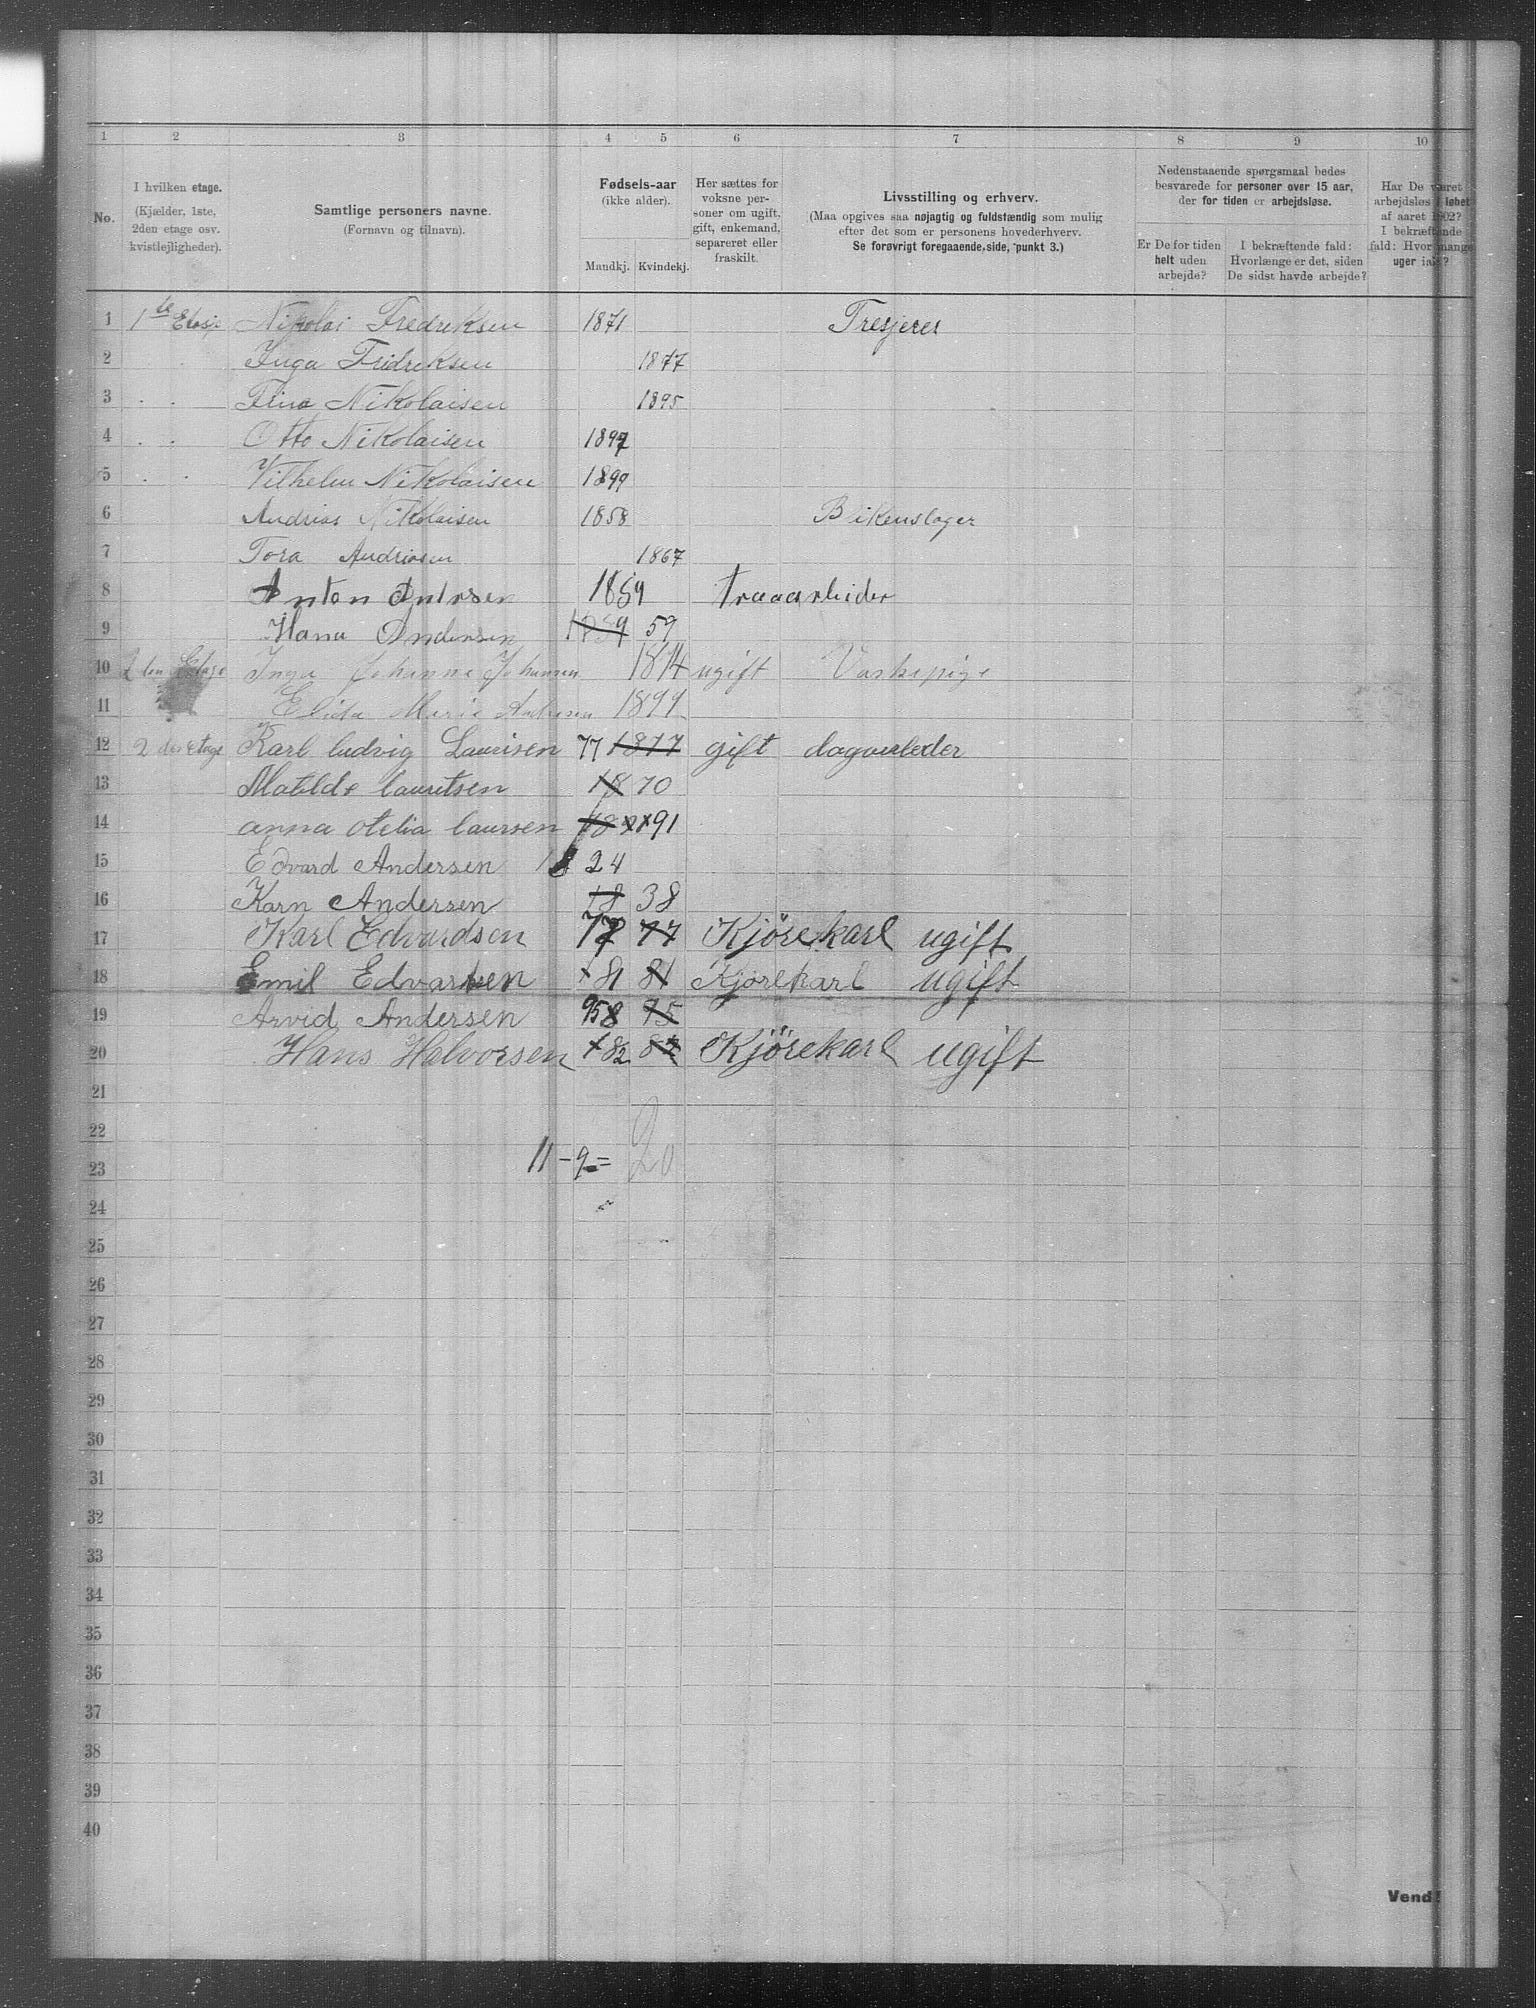 1 2 3 4 5 6 7 8 9 10
No.
I hvilken etage.
(Kjælder, 1ste,
2den etage osv.
kvistlejligheder).
Samtlige personers navne.
(Fornavn og tilnavn).
Fødsels-aar
(ikke alder).
Mandkj. Kvindekj.
Her sættes for
voksne per-
soner om ugift,
gift, enkemand,
separeret eller
fraskilt.
Livsstilling og erhverv.
(Maa opgives saa nøjagtig og fuldstændig som mulig
efter det som er personens hovederhverv.
Se forøvrigt foregaaende side, punkt 3.)
Nedenstaaende spørgsmaal bedes
besvarede for personer over 15 aar,
der for tiden er arbejdsløse.
Er De for tiden
helt uden
arbejde?
I bekræftende fald:
Hvorlænge er det, siden
De sidst havde arbejde?
Har De været
arbejdsløs i løbet
af aaret 1902?
I bekræftende
fald: Hvor mange
uger ialt?
1 1te Etasje Nikolai Fredriksen 1871 Tresjerer
2 Inga Fridreksen 1877
3 Fina Nikolaisen 1895
4 Otto Nikolaisen 1897
5 Vilhelm Nikolaisen 1899
6 Andrias Nikolaisen 1858 Blikenslager
7 Tora Andriasen 1867
8 Anton Anersen 1859 traaarbeider
9 Hana Andersen 1859 59
10 2den Etage Inga Johanne Johansen 1874 ugift Vaskepige
11 Elida Marie 1899
12 2den etage Karl ludvig Lauritsen 77 1877 gift dagarbeider
13 Matilde lauritsen 18 70
14 anna otelia laursen 18 91
15 Edvard Andersen 18 24
16 Karn Andersen 18 38
17 Karl Edvardsen 77 77 Kjörekarl ugift
18 Emil Edvartsen 81 81 Kjörekarl ugift
19 Arvid Andersen 95 95
20 Hans Halvorsen 82 82 Kjörekarl ugift
21
22
23 11 - 9 = 20
24
25
26
27
28
29
30
31
32
33
34
35
36
37
38
39
40
Vend!